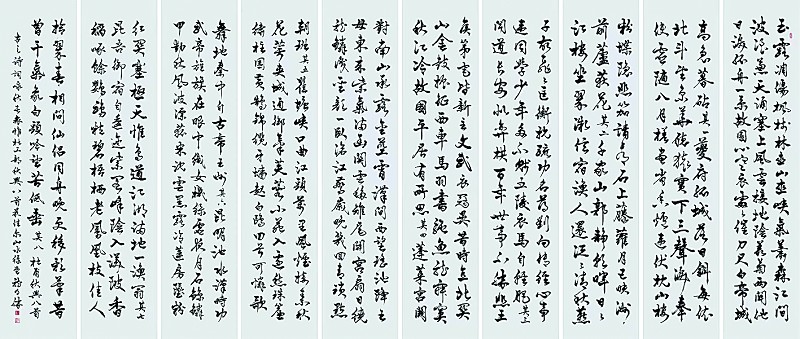 玉露凋伤枫树林巫山巫峡气萧森江间
波浪兼天涌塞上风云接地阴丛菊两开他
日泪孤舟一系故园心寒衣处处催刀尺白帝城
高急暮砧其一夔府孤城落日斜每依
北斗望京华听猿实下三声泪奉
使虚随八月槎画省香炉违伏枕山楼
粉堞隐悲笳请看石上藤萝月已映洲
前芦荻花其二千家山郭静朝晖日日
江楼坐翠微信宿渔人还泛泛清秋燕
子故飞飞匡衡抗疏功名薄刘向传经心事
违同学少年多不贱五陵衣马自轻肥其三
闻道长安似弈棋百年世事不胜悲王
侯第宅皆新主文武衣冠异昔时直北关
山金鼓振征西车马羽书驰鱼龙寂寞
秋江冷故国平居有所思其四蓬莱宫阙
对南山承露金茎霄汉间西望瑶池降王
母东来紫气满函关云移雉尾开宫扇日绕
龙鳞识圣颜一卧沧江惊岁晚几回青琐点
朝班其五瞿塘峡口曲江头万里风烟接素秋
花萼夹城通御气芙蓉小苑入边愁珠帘
绣柱围黄鹄锦缆牙樯起白鸥回首可怜歌
舞地秦中自古帝王州其六昆明池水汉时功
武帝旌旗在眼中织女机丝虚夜月石鲸鳞
甲动秋风波漂菰米沈云黑露冷莲房坠粉
红关塞极天惟鸟道江湖满地一渔翁其七
昆吾御宿自逶迤紫阁峰阴入渼陂香
稻啄馀鹦鹉粒碧梧栖老凤凰枝佳人
拾翠春相问仙侣同舟晚更移彩笔昔
曾干气象白头吟望苦低垂其八杜甫秋兴八首